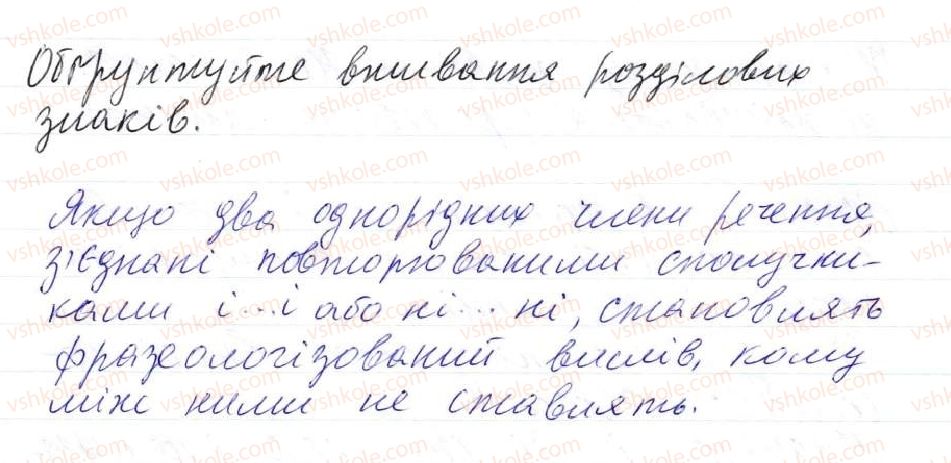 Обґрунтуйте вживання розділових
знаків.
Якщо два однорідних члени речення,
з'єднані повторюваними сполучни-
ками і...і або ні...ні, становлять
фразеологізований вислів, кому
між ними не ставлять.